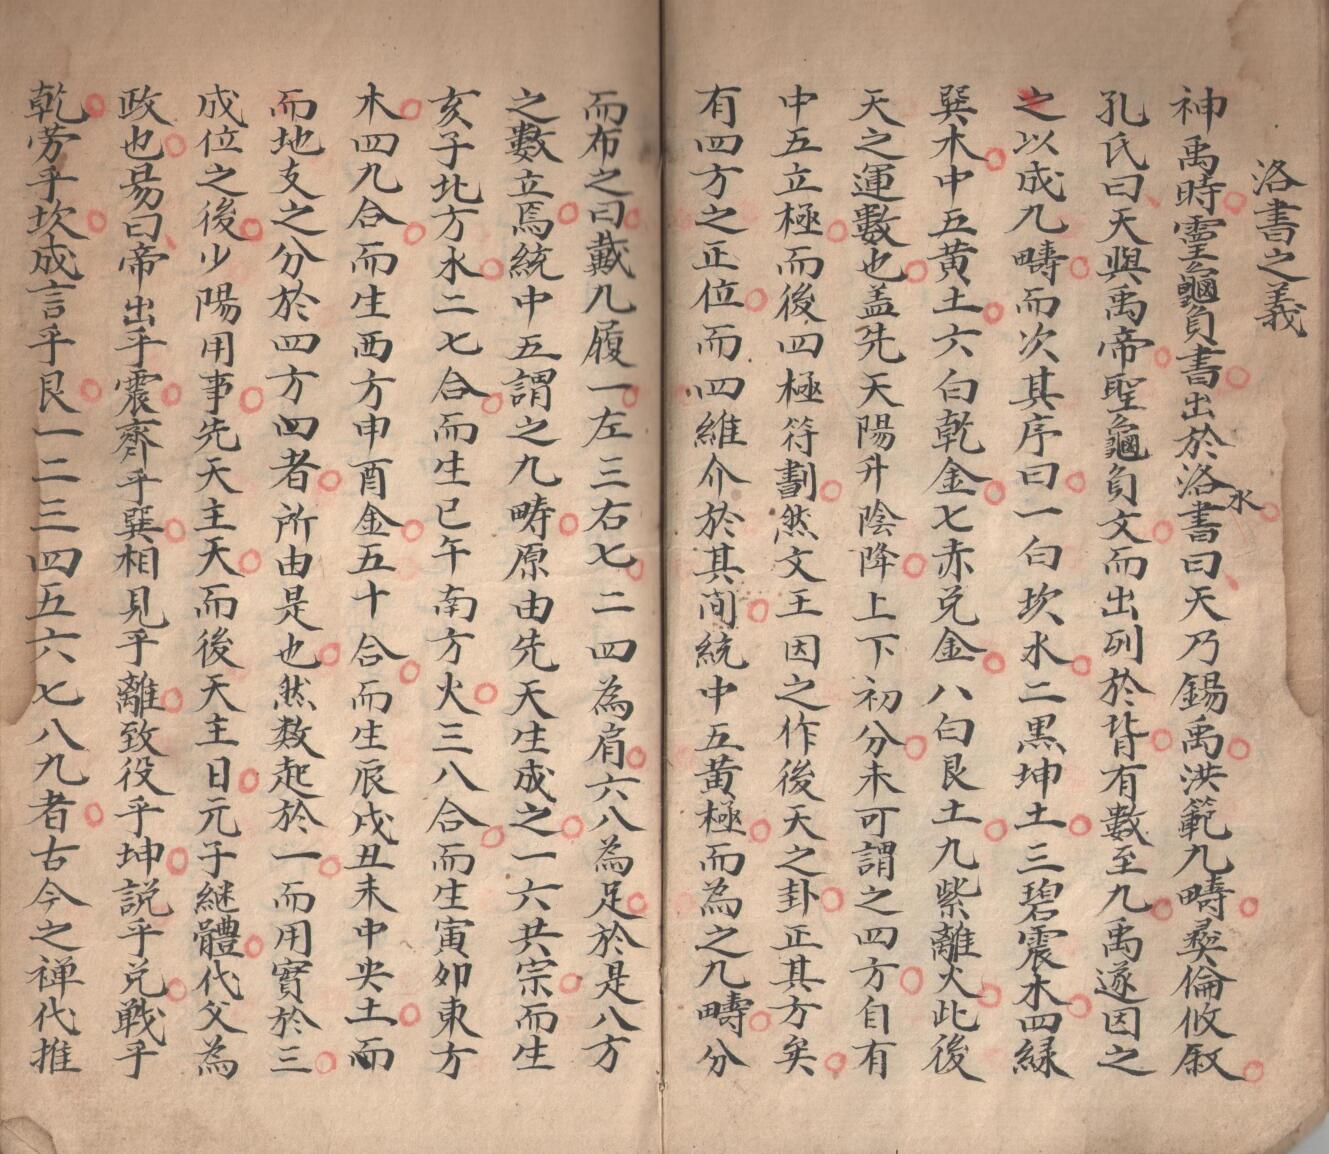 洛書之義
神禹時靈龜負書出於洛水書曰天乃錫禹洪範九疇彜倫攸叙
孔氏曰天與禹帝聖龜負文而出列於背有數至九禹遂因之
之以成九疇而次其序曰一白坎水二黒坤土三碧震木四緑
巽木中五黄土六白乾金七赤兑金八白艮土九紫離火此後
天之運數也盖先天陽升陰降上下初分未可謂之四方自有
中五立極而後四極符劃然文王因之作後天之卦正其方矣
有四方之正位而四維介於其间統中五黄極而為之九疇分
而布之曰戴九履一左三右七二四為肩六八為足於是八方
之數立焉統中五謂之九畴原由先天生成之一六共宗而生
亥子北方水二七合而生巳午南方火三八合而生寅卯東方
木四九合而生西方申酉金五十合而生辰戌丑未中央土而
而地支之分於四方四者所由是也然数起於一而用實於三
成位之後少陽用事先天主天而後天主日元子継體代父為
政也易曰帝出乎震齊乎巽相見乎離致役乎坤説乎兑戰乎
乾劳乎坎成言乎艮一二三四五六七八九者古今之禅代推